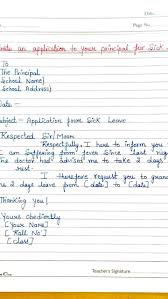 Date
Page No.
Write an application to your principal for Sick
To
The Principal
School Name]
School Address)
Date -
Subject - Application from Sick Leave
Respected Sir/Mam
Respectfully, I have to inform you
I am suffering from fever since last nig
the doctor had advised me to take 2 days
rest.
I therefore request you to gran
me 2 days leave from [date] to [date]
Thanking you!
Yours Obediently
[Your Name]
[Roll No]
[class]
Teacher's Signature